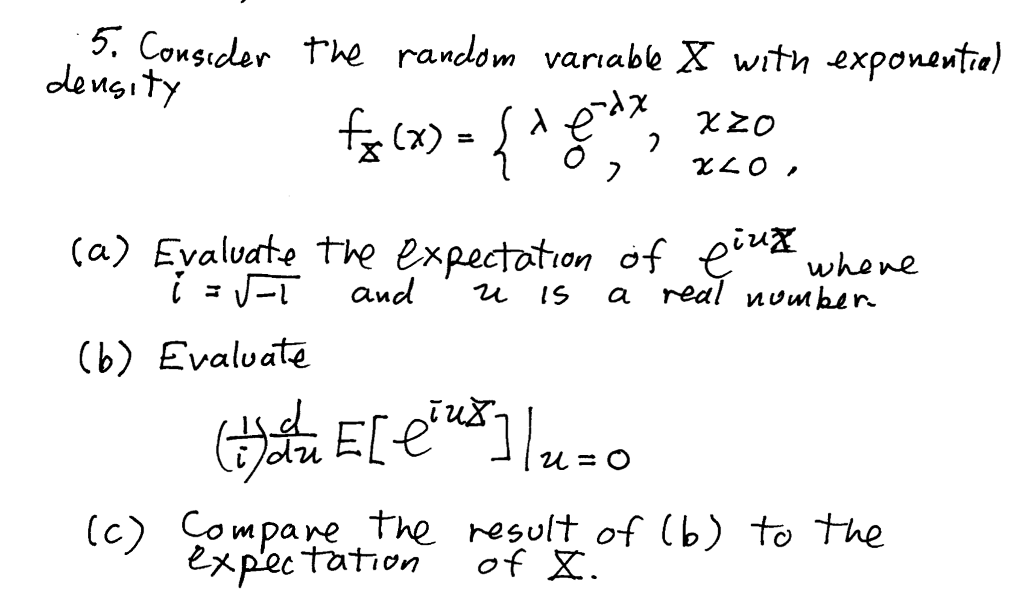 5. Consider the random variable X with exponential
density
f_X(x) = { λ e^{-λx}, x≥0
0, x<0,
(a) Evaluate the expectation of e^{iuX} where
i = √-1 and u is a real number
(b) Evaluate
(1/i) d/du E[e^{iuX}]|_{u=0}
(c) Compare the result of (b) to the
expectation of X.